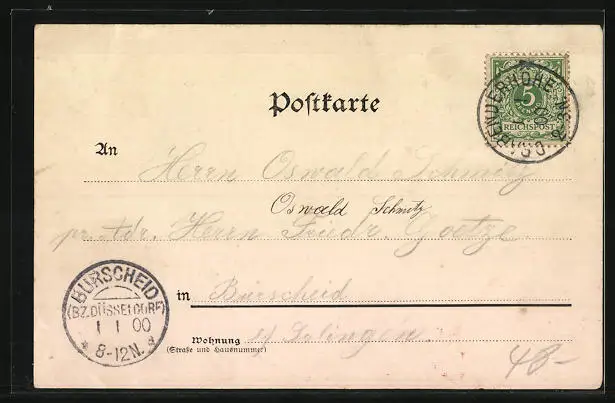 5
REICHSPOST
Postkarte
An
Herrn Oswald Schmitz
Oswald Schmitz
pr. Adr. Herrn Friedr. Goetze
in Burscheid
Wohnung
(Straße und Hausnummer)
b/ Solingen.
BURSCHEID
(BZ.DÜSSELDORF)
1 1 00
* 8-12N. *
48-